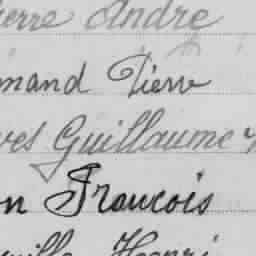 ierre André
mand Pierre
ves Guillaume
on François
ville Henri